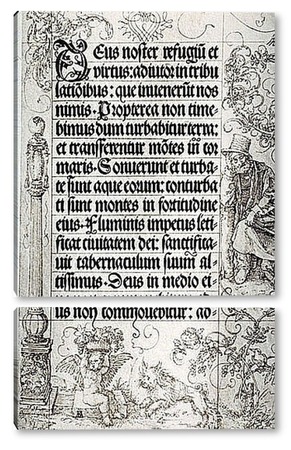 Deus noster refugiũ et
virtus: adiutor in tribu
lationibus: que invenerũt nos
nimis. Propterea non time
bimus dum turbabitur terra:
et transferentur mõtes in cor
maris. Sonuerunt et turba-
te sunt aque eorum: conturba
ti sunt montes in fortitudine
eius. Fluminis impetus leti
ficat civitatem dei: sanctifica
vit tabernaculum suum al-
tissimus. Deus in medio ei-
us non commovebitur: ad-